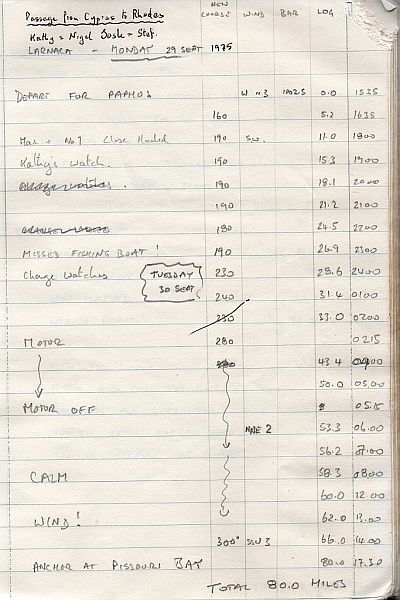 Passage from Cyprus to Rhodes
Kathy + Nigel
LARNACA - MONDAY 29 SEPT 1975
NEW COURSE WIND BAR LOG
DEPART FOR PAPHOS W N 3 1002.5 0.0 1535
160 5.2 1635
Main + No 1 Close Hauled 190 S.W. 11.0 1800
Kathy's watch. 190 15.3 1900
Change watches. 190 18.1 2000
190 21.2 2100
CHANGE WATCHES 180 24.5 2200
MISSED FISHING BOAT! 190 26.9 2300
Change Watches 230 28.6 2400
TUESDAY
30 SEPT
240 31.4 0100
230 33.0 0200
MOTOR 280 0215
43.4 0400
50.0 05.00
MOTOR OFF 05.15
NNE 2 53.3 06.00
56.2 07.00
CALM 58.3 0800
60.0 12.00
WIND! 62.0 13.00
300° SSW 3 66.0 14.00
ANCHOR AT PISSOURI BAY 80.0 17.30
TOTAL 80.0 MILES